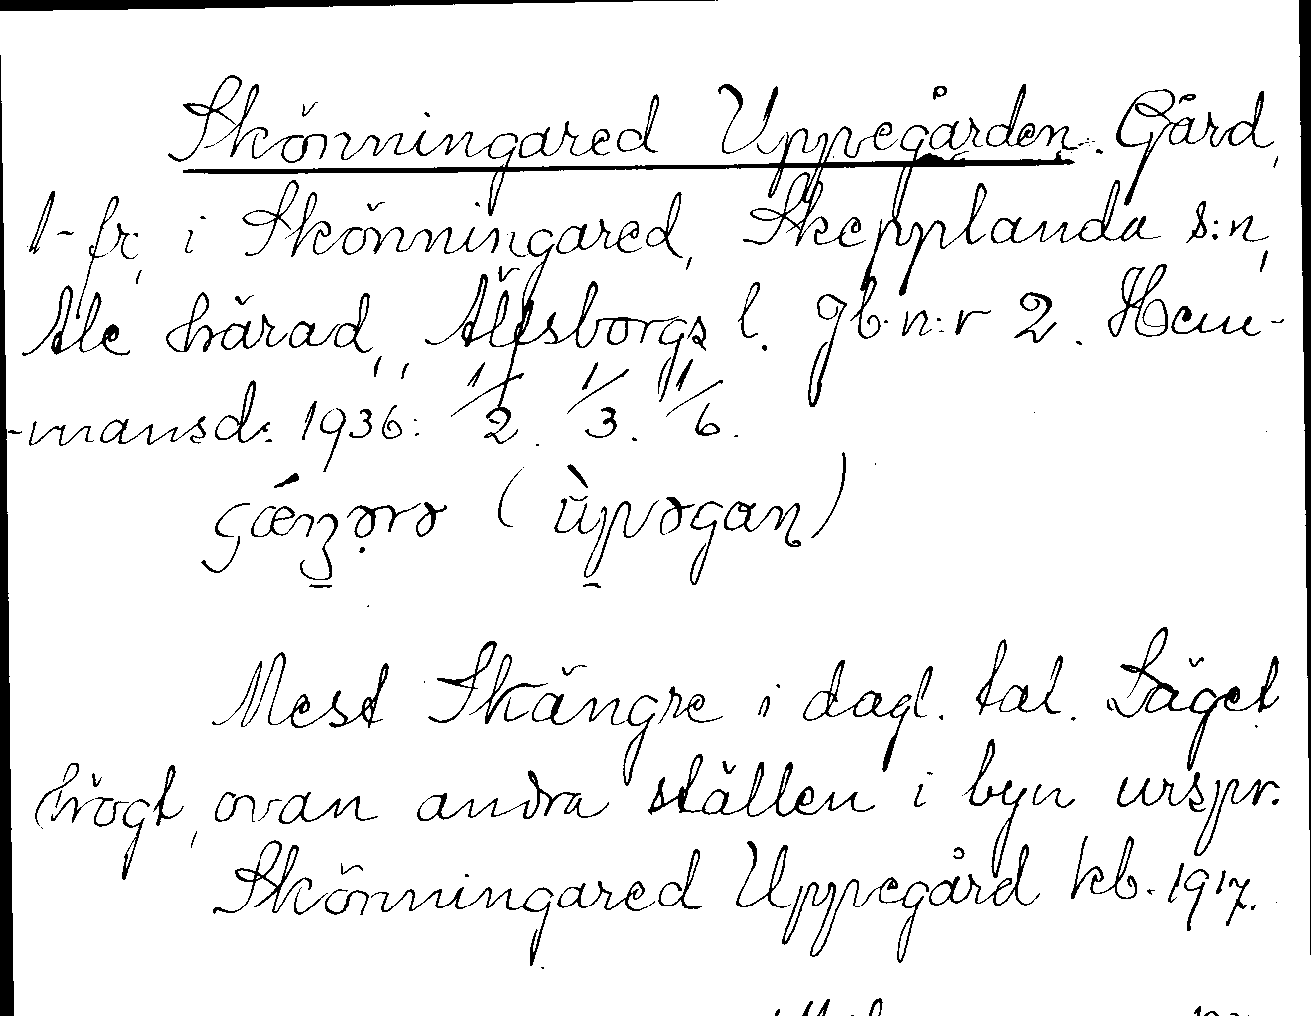 Skönningared Uppegården. Gård,
1-fr., i Skönningared, Skepplanda s:n,
Ale härad, Älfsborgs l. Jb.n:r 2. Hem-
-mansd. 1936: 1/2. 1/3. 1/6.
(ùpəgaɳ)
Mest Skängre i dagl. tal. Läget
högt, ovan andra ställen i byn urspr.
Skönningared Uppegård kb. 1917.